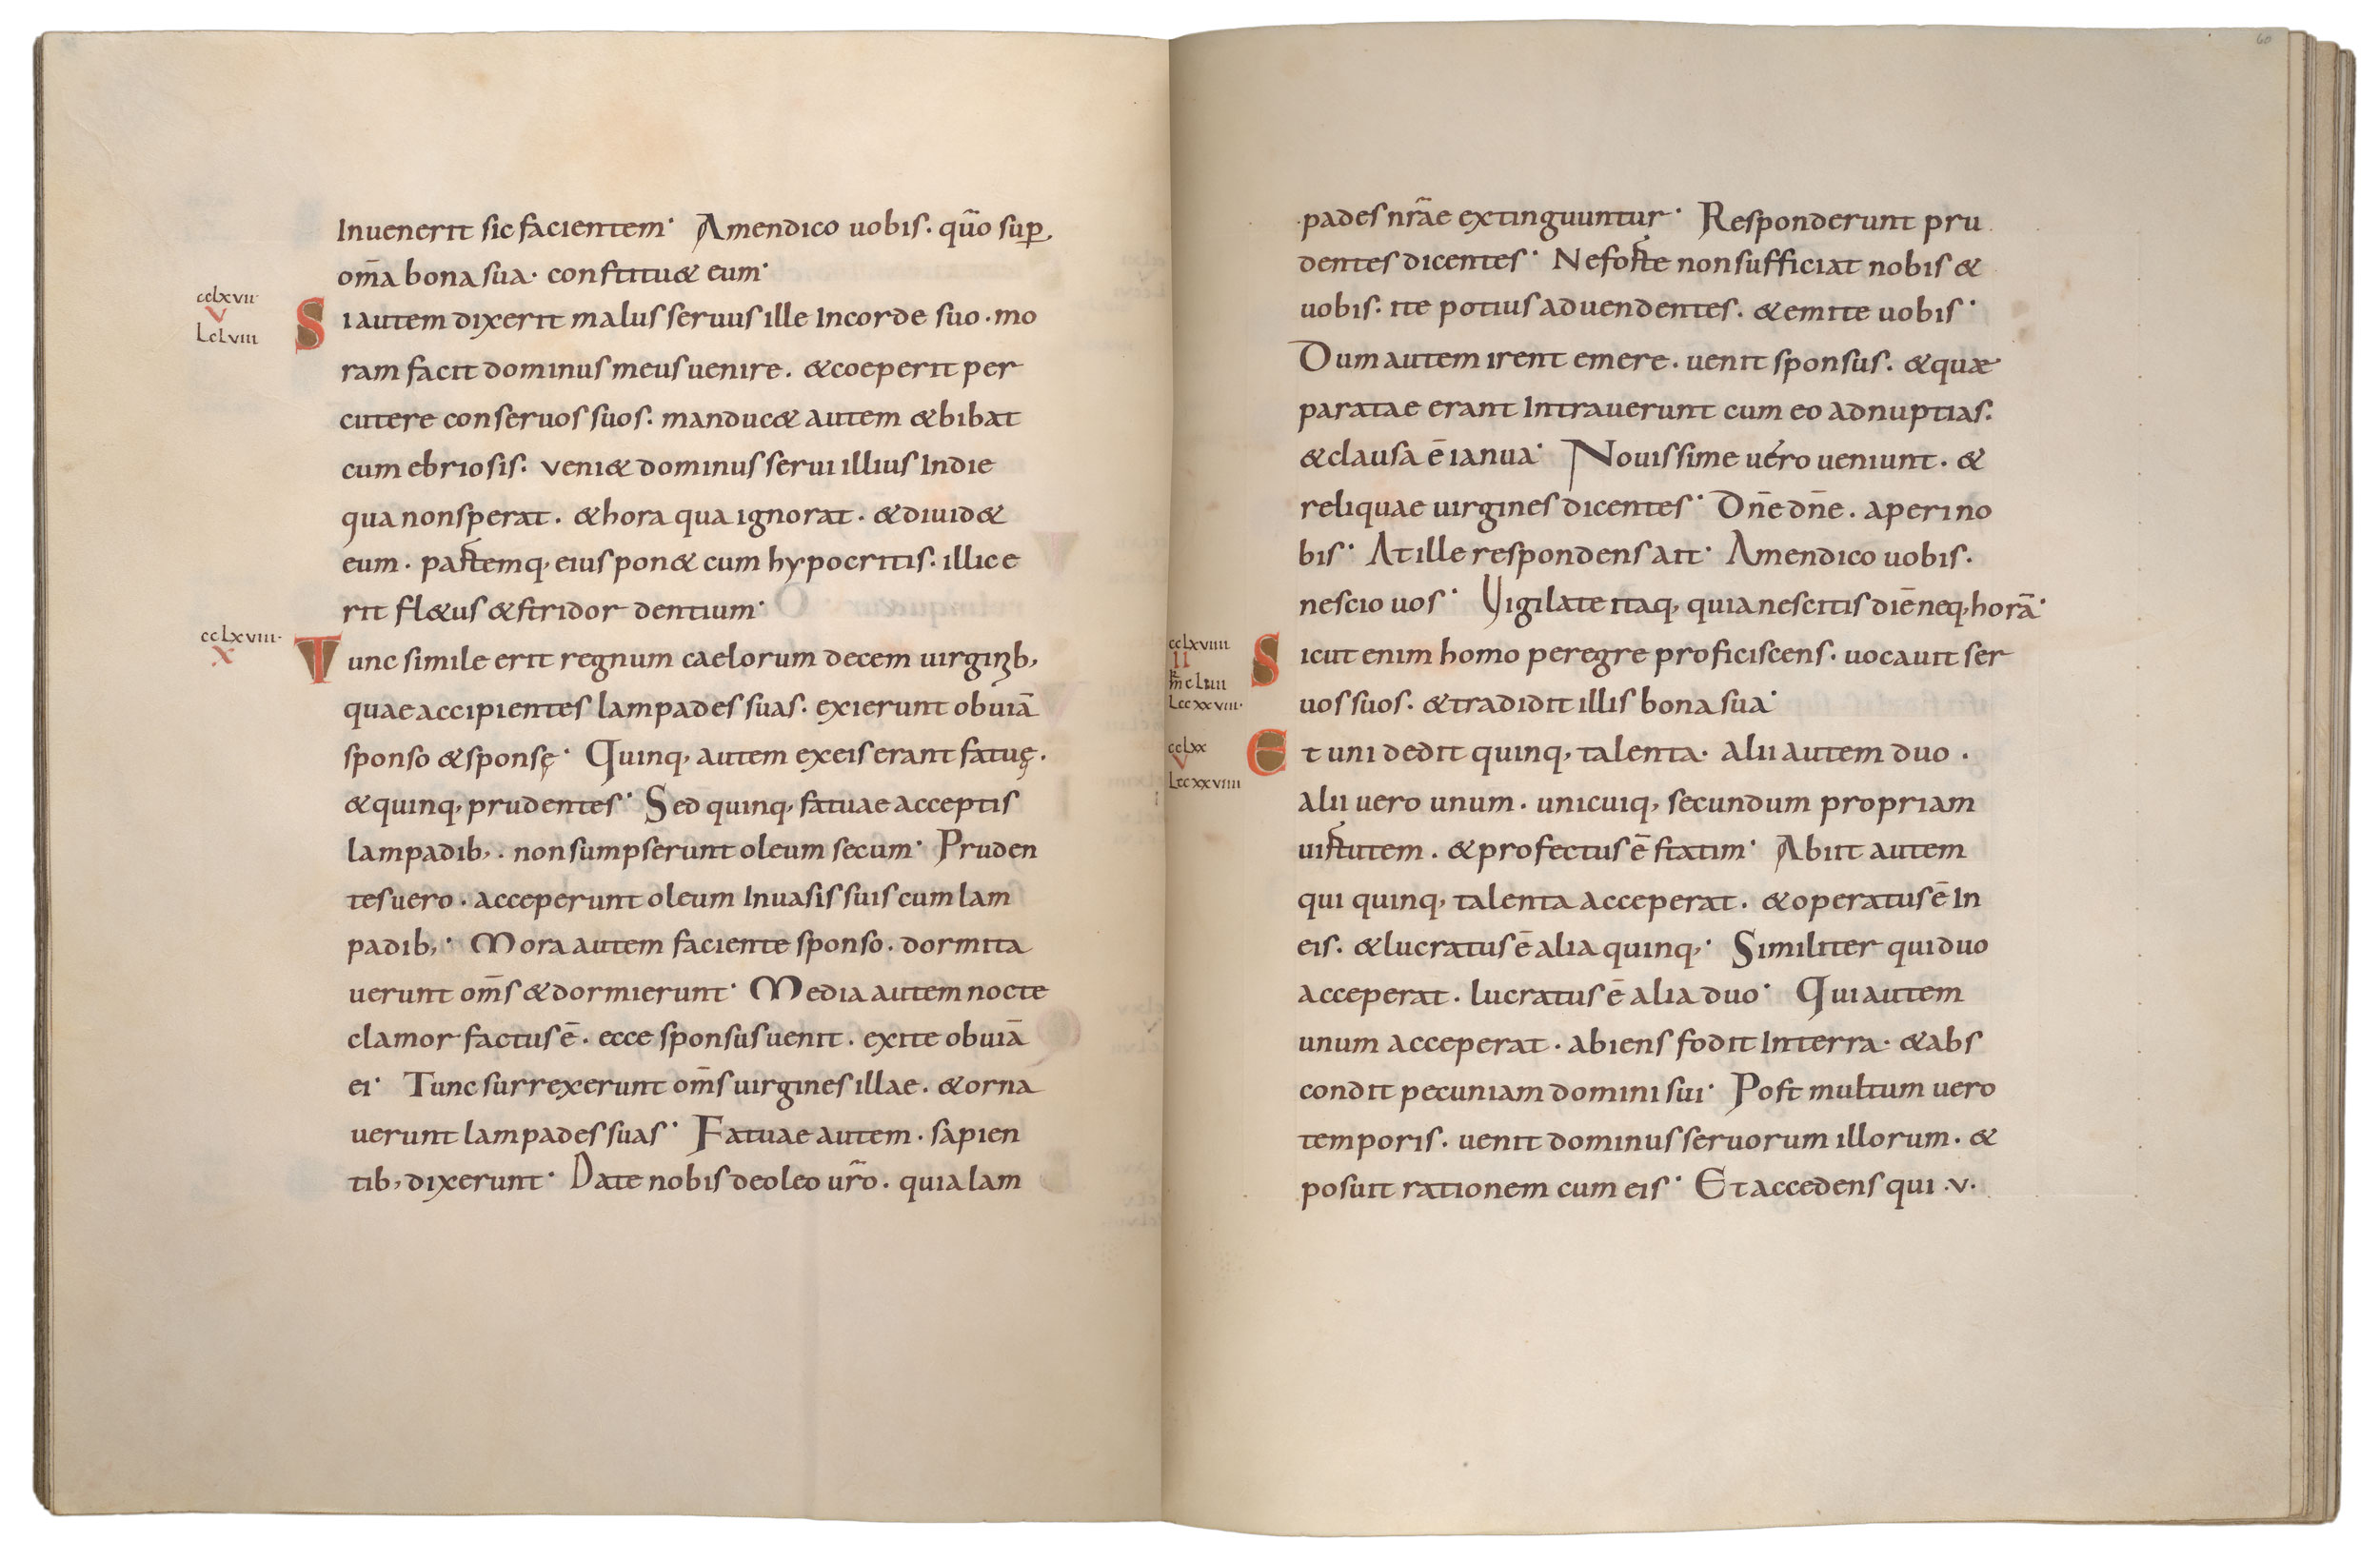 Inuenerit sic facientem· Amendico uobis. qūo sup̱.
om̄a bona sua· constitu& eum·
cclxvii·
V
Lclviii
Siautem dixerit malus seruus ille Incorde suo· mo
ram facit dominus meus uenire. &coeperit per
cutere conseruos suos. manduc& autem &bibat
cum ebriosis. veni& dominus serui illius Indie
qua nonsperat. &hora qua ignorat. &diuid&
eum. partemq, eius pon& cum hypocritis. illic e
rit fl&us &stridor dentium·
cclxviii·
X
Tunc simile erit regnum caelorum decem uirginib,
quae accipientes lampades suas. exierunt obuiā
sponso &sponsę· Quinq, autem exeis erant fatuę.
&quinq, prudentes· Sed quinq, fatuae acceptis
lampadib,. nonsumpserunt oleum secum· Pruden
tes uero. acceperunt oleum Inuasis suis cum lam
padib,· Mora autem faciente sponso. dormita
uerunt om̄s &dormierunt· Media autem nocte
clamor factus ē. ecce sponsus uenit. exite obuiā
ei· Tunc surrexerunt om̄s uirgines illae. &orna
uerunt lampades suas· Fatuae autem. sapien
tib, dixerunt· Date nobis deoleo ur̄o. quia lam
60
pades nr̄ae extinguuntur· Responderunt pru
dentes dicentes· Neforte nonsufficiat nobis &
uobis. ite potius aduendentes. &emite uobis·
Dum autem irent emere. uenit sponsus. &quae
paratae erant Intrauerunt cum eo adnuptias.
&clausa ē ianua· Nouissime uero ueniunt. &
reliquae uirgines dicentes· Dn̄e dn̄e. aperi no
bis· At ille respondens ait· Amendico uobis.
nescio uos· Vigilate itaq, quia nescitis diē neq, horā·
cclxviiii
II
m̄ cliiii
Lccxxviii·
Sicut enim homo peregre proficiscens. uocauit ser
uos suos. &tradidit illis bona sua·
cclxx
V
Lccxxviiii
Et uni dedit quinq, talenta· alii autem duo.
alii uero unum. unicuiq, secundum propriam
uirtutem. &profectus ē statim· Abiit autem
qui quinq, talenta acceperat. &operatus ē In
eis. &lucratus ē alia quinq,· Similiter qui duo
acceperat. lucratus ē alia duo· Qui autem
unum acceperat. abiens fodit Interra· &abs
condit pecuniam domini sui· Post multum uero
temporis. uenit dominus seruorum illorum. &
posuit rationem cum eis· Et accedens qui .v.